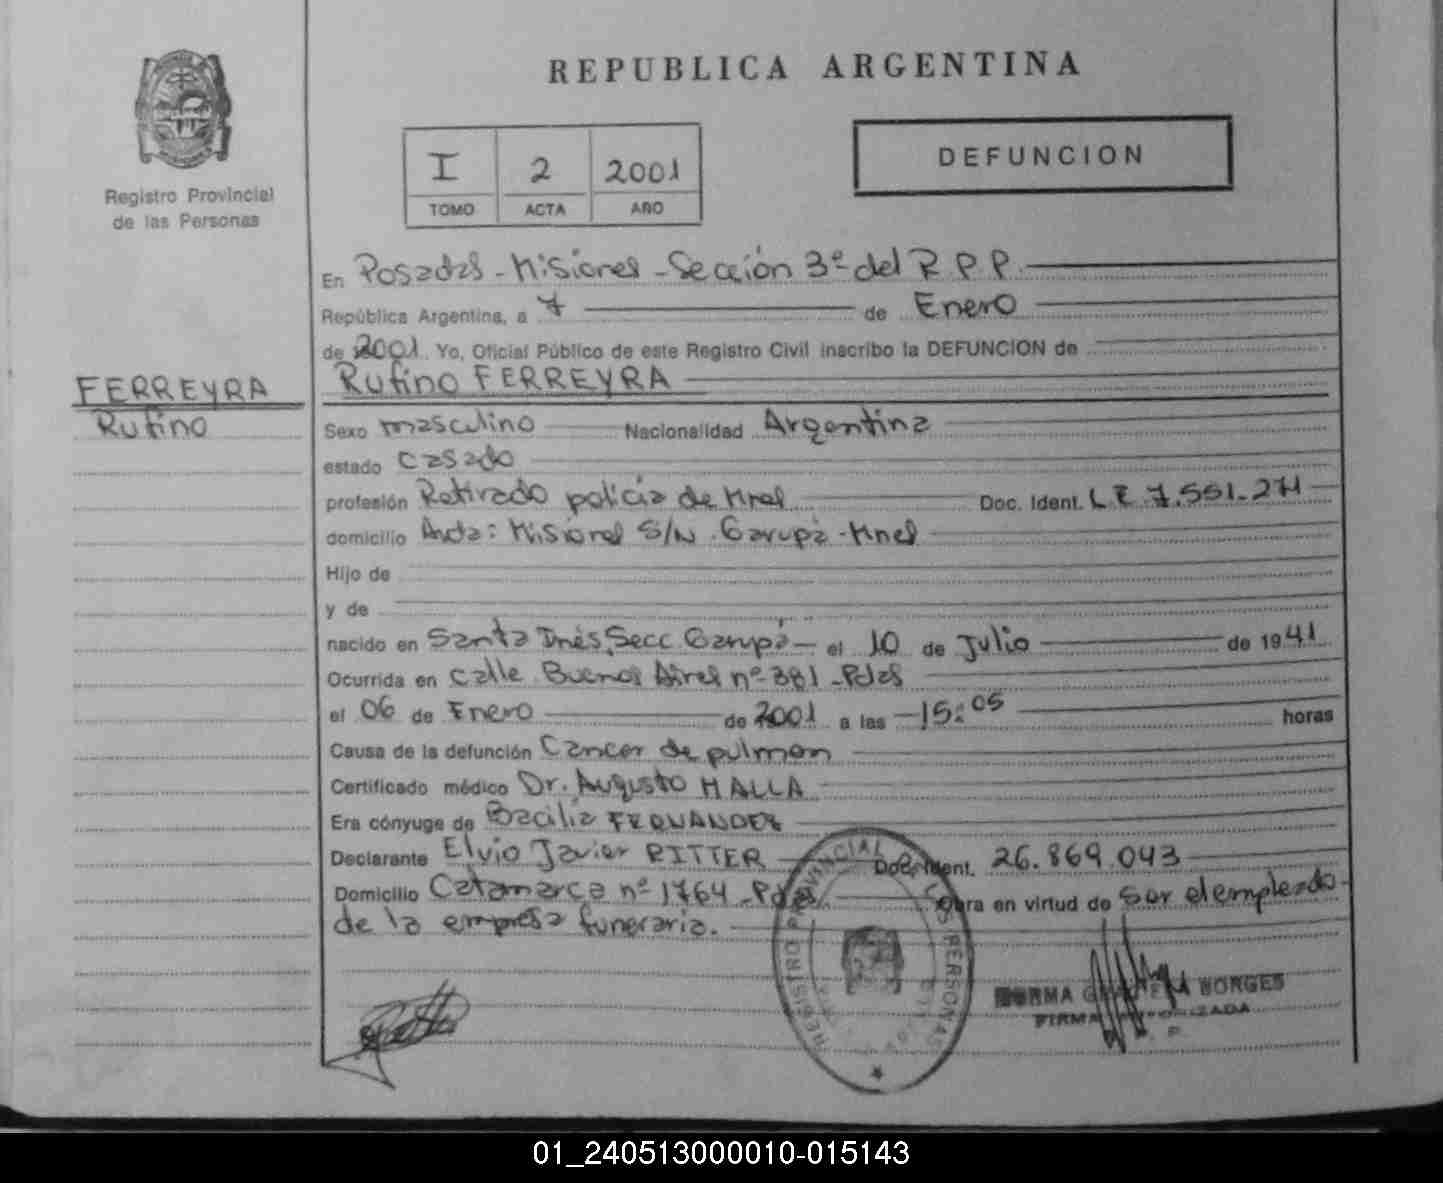 REPUBLICA ARGENTINA
DEFUNCION
I 2 2001
TOMO ACTA AÑO
Registro Provincial
de las Personas
En Posadas - Misiones - Sección 3º del R.P.P.
República Argentina, a 7 de Enero
de 2001 Yo, Oficial Público de este Registro Civil inscribo la DEFUNCION de
FERREYRA
Rufino
Rufino FERREYRA
Sexo masculino Nacionalidad Argentina
estado casado
profesión Retirado policia de Mnes Doc. Ident. L.E. 7.551.271
domicilio Avda: Misiones S/N. Garupá - Mnes
Hijo de
y de
nacido en Santa Inés, Secc. Garupá - el 10 de Julio de 1941
Ocurrida en calle Buenos Aires nº 381 - Pdas
el 06 de Enero de 2001 a las 15:05 horas
Causa de la defunción Cancer de pulmon
Certificado médico Dr. Augusto MALLA
Era cónyuge de Bacilia FERNANDEZ
Declarante Elvio Javier RITTER Doc. Ident. 26.869.043
Domicilio Catamarca nº 1764 - Pdas Obra en virtud de ser el empleado
de la empresa funeraria.
REGISTRO PROVINCIAL PERSONAS
NORMA BORGES
FIRMA AUTORIZADA
01_240513000010-015143